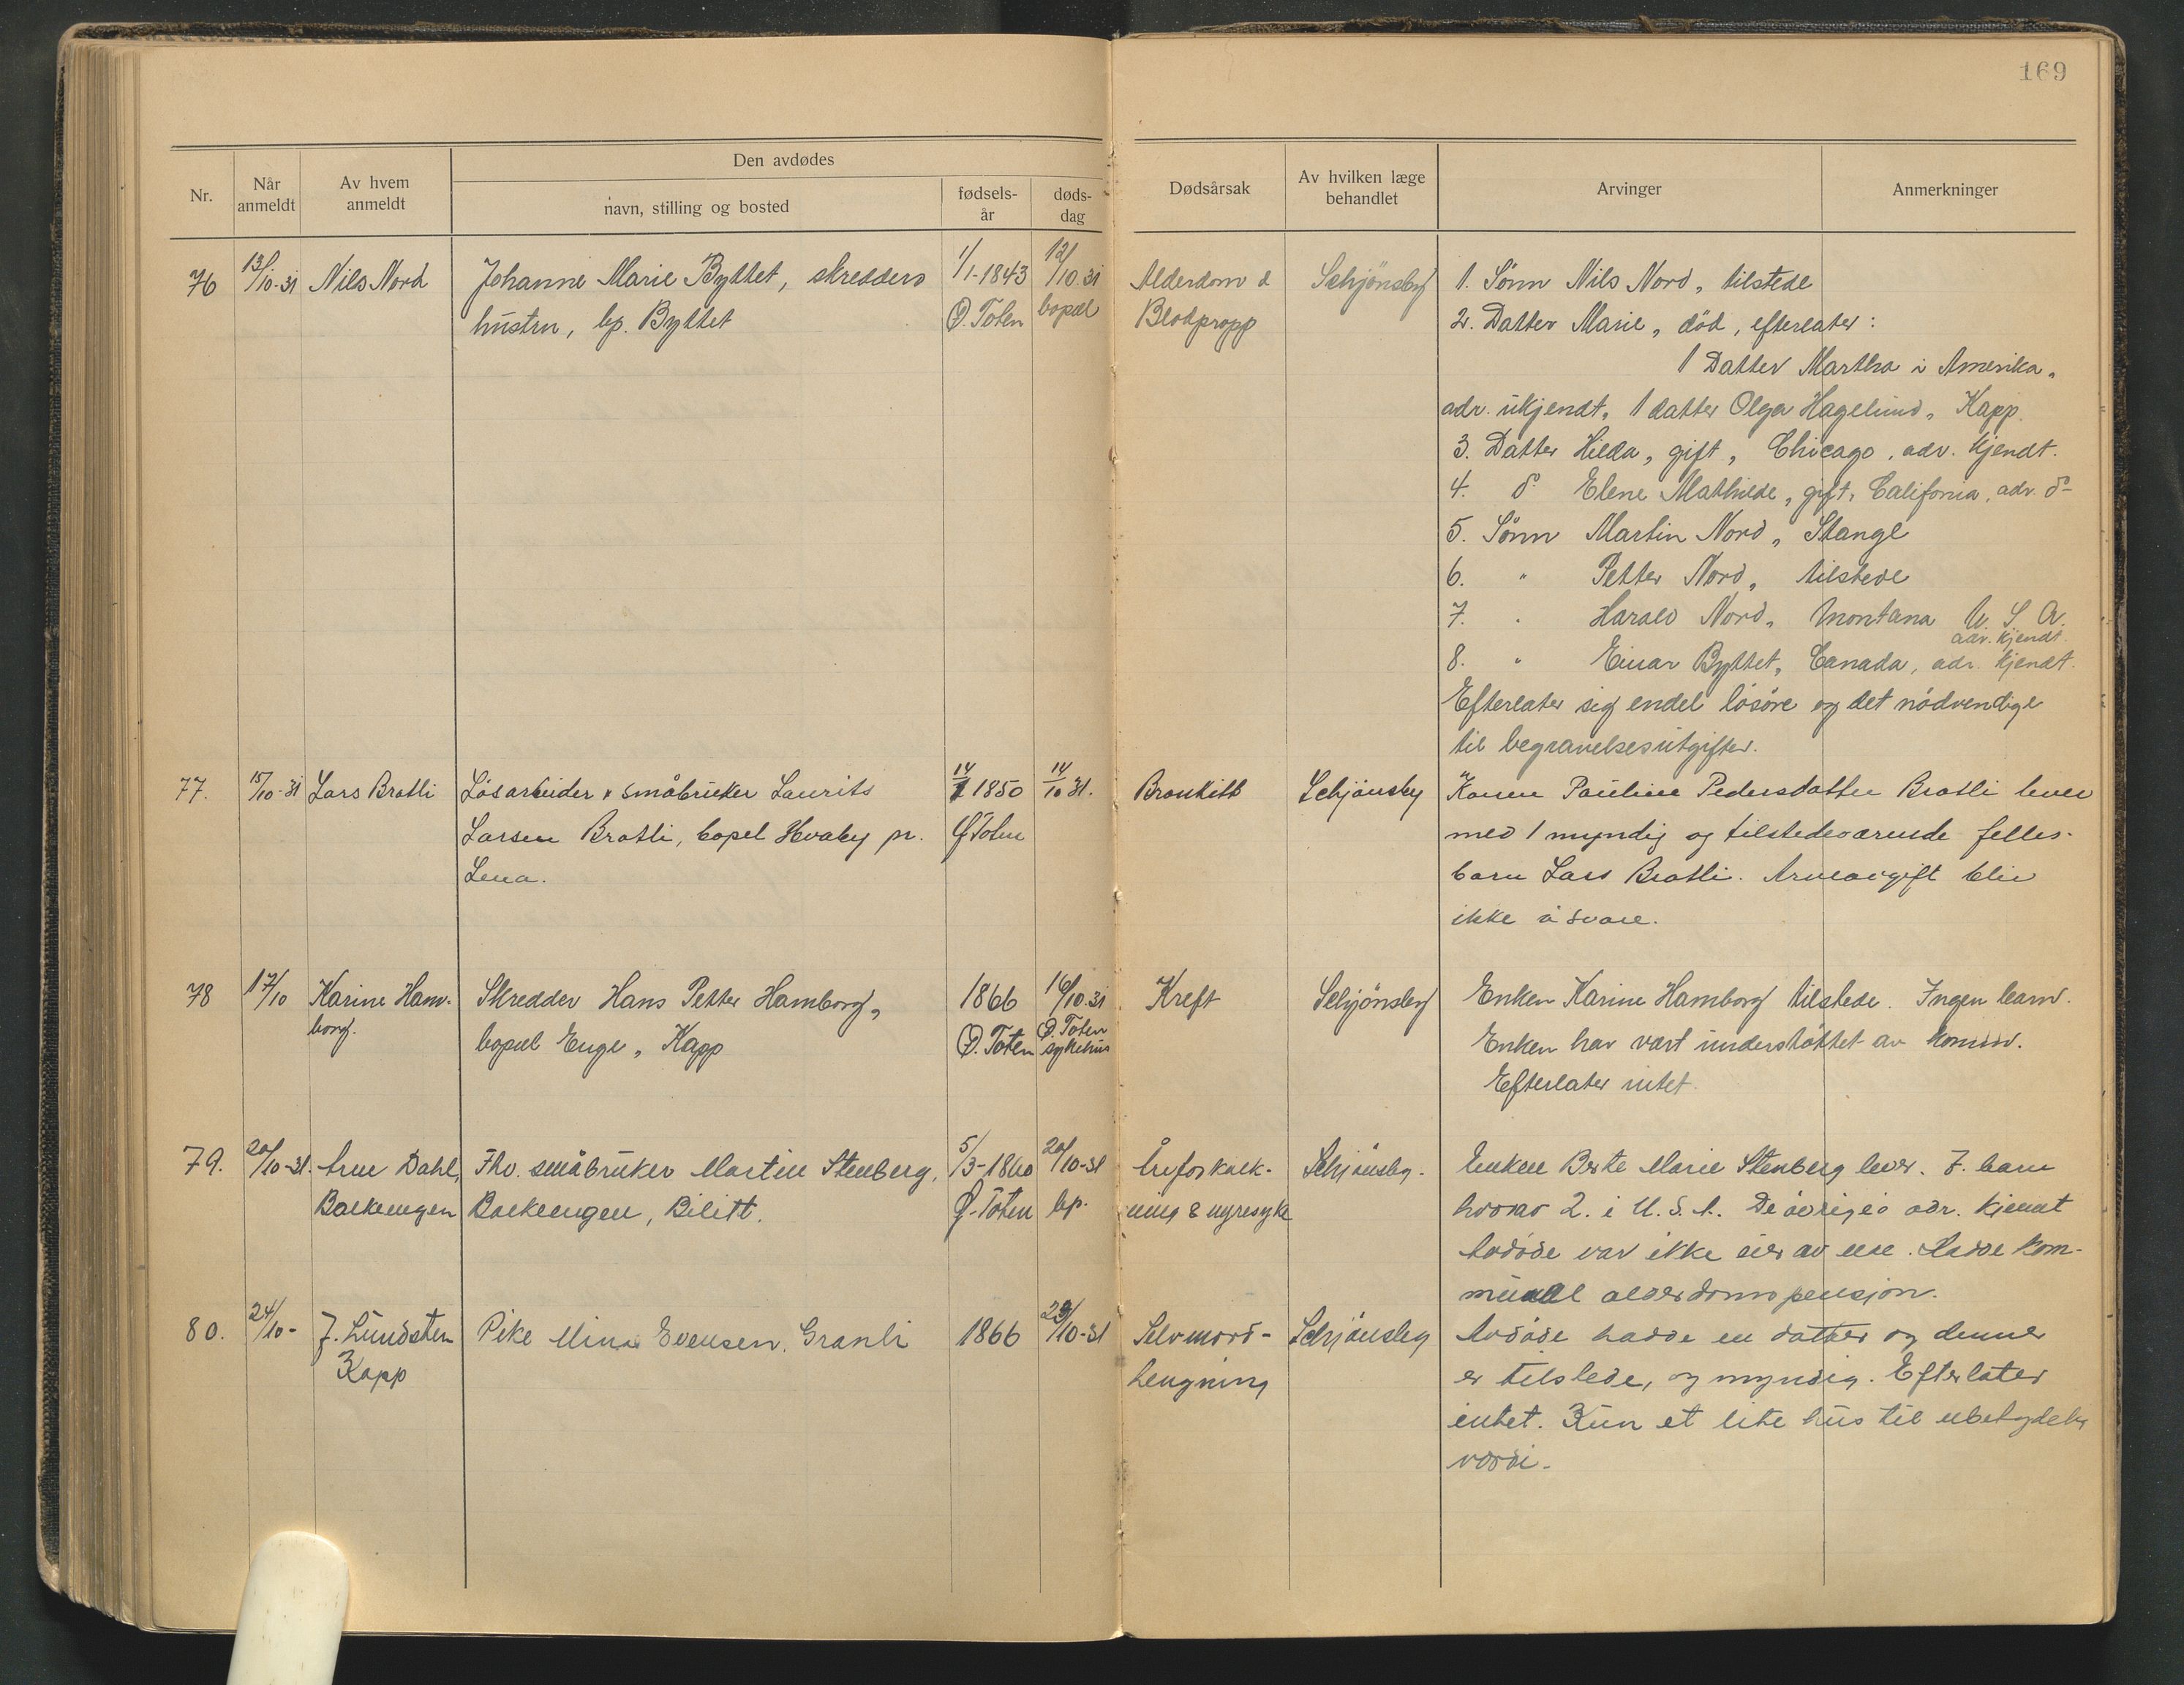 169
Den avdødes
Nr.
Når anmeldt
Av hvem anmeldt
navn, stilling og bosted
fødsels-år
døds-dag
Dødsårsak
Av hvilken læge behandlet
Arvinger
Anmerkninger
76 13/10-31 Nils Nord Johanne Marie Byttet, skredders 1/1-1843 12/10.31 Alderdom & Schjönsby 1. Sönn Nils Nord, tilstede
hustru, bp. Byttet Ø. Toten bopæl Blodpropp 2. Datter Marie, död, efterlater:
1 Datter Martha i Amerika,
adr. ukjendt, 1 datter Olga Hagelund, Kapp.
3. Datter Hilda, gift, Chicago, adr. kjendt.
4. do Elene Mathilde, gift, California, adr. do
5. Sönn Martin Nord, Stange
6. " Petter Nord, tilstede
7. " Harald Nord, Montana U. S. A.
adr. kjendt.
8. " Einar Byttet, Canada, adr. kjendt.
Efterlater sig endel lösöre og det nödvendige
til begravelsesutgifter.
77. 15/10-31 Lars Bratli Lösarbeider & småbruker Laurits 14/1 1850 14/10 31. Bronkitt Schjönsby Konen Pauline Pedersdatter Bratli lever
Larsen Bratli, bopel Hvaby pr. Ø Toten med 1 myndig og tilstedeværende felles-
Lena. barn Lars Bratli. Arveavgift blir
ikke å svare.
78 17/10 Karine Ham- Skredder Hans Petter Hamborg, 1866 16/10.31 Kreft Schjönsby Enken Karine Hamborg tilstede. Ingen barn.
borg. bopæl Enge, Kapp Ø. Toten Ø. Toten sykehus Enken har vært understöttet av komm.
Efterlater intet
79. 20/10-31. Arne Dahl, Fhv. småbruker Martin Stenberg, 5/3-1860 20/10-31 Åreforkalk- Schjönsby. Enken Berte Marie Stenberg lever. 7. barn
Bakkengen Bakkengen, Bilitt. Ø. Toten bp. ning & nyresyke hvorav 2. i U. S. A. De övriges adr. kjendt
Avdöde var ikke eier av noe. Hadde kom-
munal alderdomspensjon.
80. 24/10- J. Lundsten Pike Mina Evensen Granli 1866 23/10-31 Selvmord- Schjönsby Avdöde hadde en datter og denne
Kapp hengning er tilstede, og myndig. Efterlater
intet. Kun et lite hus til ubetydelig
verdi.